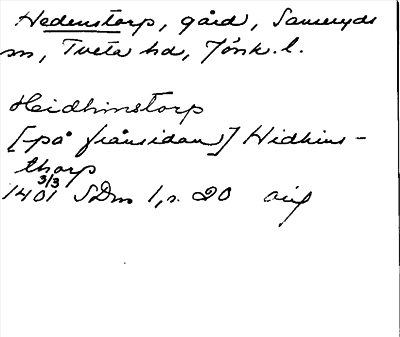 Hedenstorp, gård, Sanseryds
sn, Tveta hd, Jönk. l.
Heidhinstorp
[på frånsidan] Hidhins-
thorp
1401 3/3 SDns 1, s. 20 orig